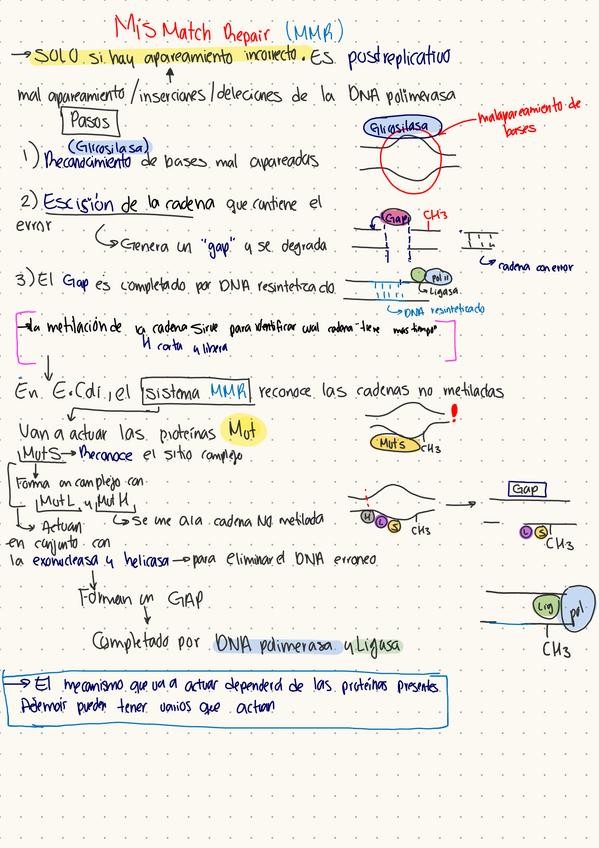 Mis Match Repair (MMR)
→ SOLO si hay apareamiento incorrecto. Es postreplicativo
mal apareamiento/inserciones/deleciones de la DNA polimerasa
Pasos
Glicosilasa
malapareamiento de
bases
(Glicosilasa)
1) Reconocimiento de bases mal apareadas
2) Escisión de la cadena que contiene el
error
Gap
CH3
Genera un "gap" y se degrada
cadena con error
3) El Gap es completado por DNA resintetizado
pol II
Ligasa
DNA resintetizado
la metilación de la cadena sirve para identificar cual cadena tiene mas tiempo
H corta y libera
En E.Coli, el sistema MMR reconoce las cadenas no metiladas
Van a actuar las proteínas Mut
!
MutS
CH3
MutS → Reconoce el sitio complejo
Forma un complejo con
MutL y MutH
Gap
H L S
CH3
L S
CH3
Actúan Se une a la cadena NO metilada
en conjunto con
la exonucleasa y helicasa → para eliminar el DNA erroneo
Forman un GAP
Lig
pol
CH3
Completado por DNA polimerasa y Ligasa
→ El mecanismo que va a actuar dependerá de las proteínas presentes
Además pueden tener varios que actúan